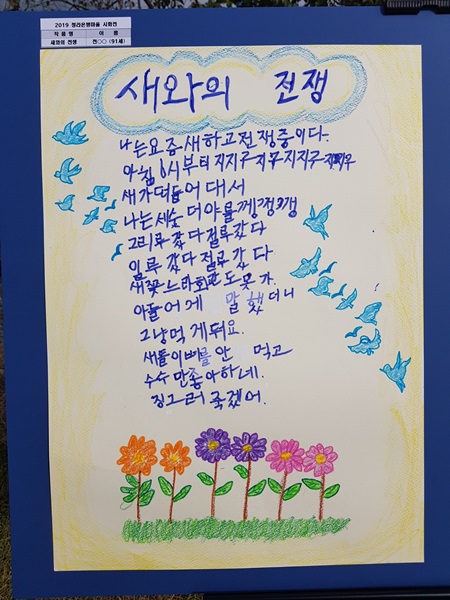 2019 청라은행마을 시화전
작 품 명 이 름
새와의 전쟁 전○○ (91세)
새와의 전쟁
나는요즘새하고전쟁중이다.
아침 6시부터 지지구지구지지구
새가떠들어대서
나는세숫더야를
그리루갔다절루갔다
일루갔다절루갔다
새쫓느라회관도못가.
아들어게 말했더니
그냥먹게둬요.
새들이벼를안 먹고
수수만좋아하네.
징그러 죽겠어.